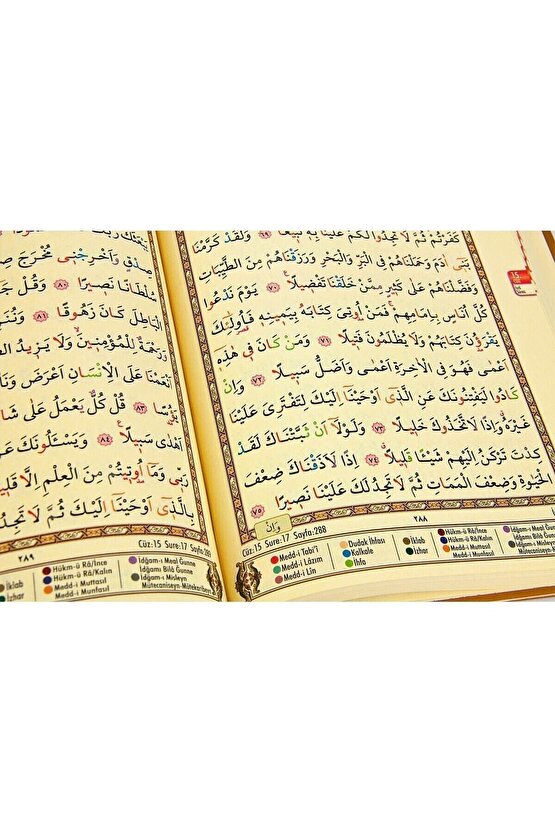 كَفَرْتُمْ ثُمَّ لَا تَجِدُوا لَكُمْ عَلَيْنَا بِهِ تَبِيعًا ﴿٦٩﴾ وَلَقَدْ كَرَّمْنَا
بَنِي اٰدَمَ وَحَمَلْنَاهُمْ فِي الْبَرِّ وَالْبَحْرِ وَرَزَقْنَاهُمْ مِنَ الطَّيِّبَاتِ
وَفَضَّلْنَاهُمْ عَلٰى كَثِيرٍ مِمَّنْ خَلَقْنَا تَفْضِيلًا ﴿٧٠﴾ يَوْمَ نَدْعُوا
كُلَّ اُنَاسٍ بِاِمَامِهِمْ فَمَنْ اُوتِيَ كِتَابَهُ بِيَمِينِهِ فَاُولٰئِكَ
يَقْرَؤُنَ كِتَابَهُمْ وَلَا يُظْلَمُونَ فَتِيلًا ﴿٧١﴾ وَمَنْ كَانَ فِي هٰذِهِ
اَعْمٰى فَهُوَ فِي الْاٰخِرَةِ اَعْمٰى وَاَضَلُّ سَبِيلًا ﴿٧٢﴾ وَاِنْ
كَادُوا لَيَفْتِنُونَكَ عَنِ الَّذِي اَوْحَيْنَا اِلَيْكَ لِتَفْتَرِيَ عَلَيْنَا
غَيْرَهُ وَاِذًا لَاتَّخَذُوكَ خَلِيلًا ﴿٧٣﴾ وَلَوْلَا اَنْ ثَبَّتْنَاكَ لَقَدْ
كِدْتَ تَرْكَنُ اِلَيْهِمْ شَيْئًا قَلِيلًا ﴿٧٤﴾ اِذًا لَاَذَقْنَاكَ ضِعْفَ
الْحَيٰوةِ وَضِعْفَ الْمَمَاتِ ثُمَّ لَا تَجِدُ لَكَ عَلَيْنَا نَصِيرًا ﴿٧٥﴾
وَاِنْ
٢٨٨
Cüz:15 Sure:17 Sayfa:288
Medd-i Tabi'î
Medd-i Lâzım
Medd-i Lîn
Dudak İhfası
Kalkale
İhfa
İklab
İzhar
Hükm-ü Râ/İnce
Hükm-ü Râ/Kalın
Medd-i Muttasıl
Medd-i Munfasıl
İdğam-ı Meal Gunne
İdğamı Bilâ Gunne
İdğam-ı Misleyn
Mütecaniseyn
15
صِدْقٍ وَاَخْرِجْنِي مُخْرَجَ
سُلْطَانًا نَصِيرًا ﴿٨٠﴾ وَقُلْ
الْبَاطِلَ كَانَ زَهُوقًا ﴿٨١﴾
وَرَحْمَةٌ لِلْمُؤْمِنِينَ وَلَا يَزِيدُ
اَنْعَمْنَا عَلَى الْاِنْسَانِ اَعْرَضَ
﴿٨٣﴾ قُلْ كُلٌّ يَعْمَلُ عَلٰى
اَهْدٰى سَبِيلًا ﴿٨٤﴾ وَيَسْـَٔلُونَكَ
رَبِّي وَمَا اُوتِيتُمْ مِنَ الْعِلْمِ اِلَّا
بِالَّذِي اَوْحَيْنَا اِلَيْكَ ثُمَّ لَا تَجِدُ
٢٨٩
Cüz:15 Sure:17 Sayfa
İklab
İzhar
Hükm-ü Râ/İnce
Hükm-ü Râ/Kalın
Medd-i Muttasıl
Medd-i Munfasıl
İdğam-ı Meal Gunne
İdğamı Bilâ Gunne
İdğam-ı Misleyn
Mütecaniseyn-Mütekaribeyn